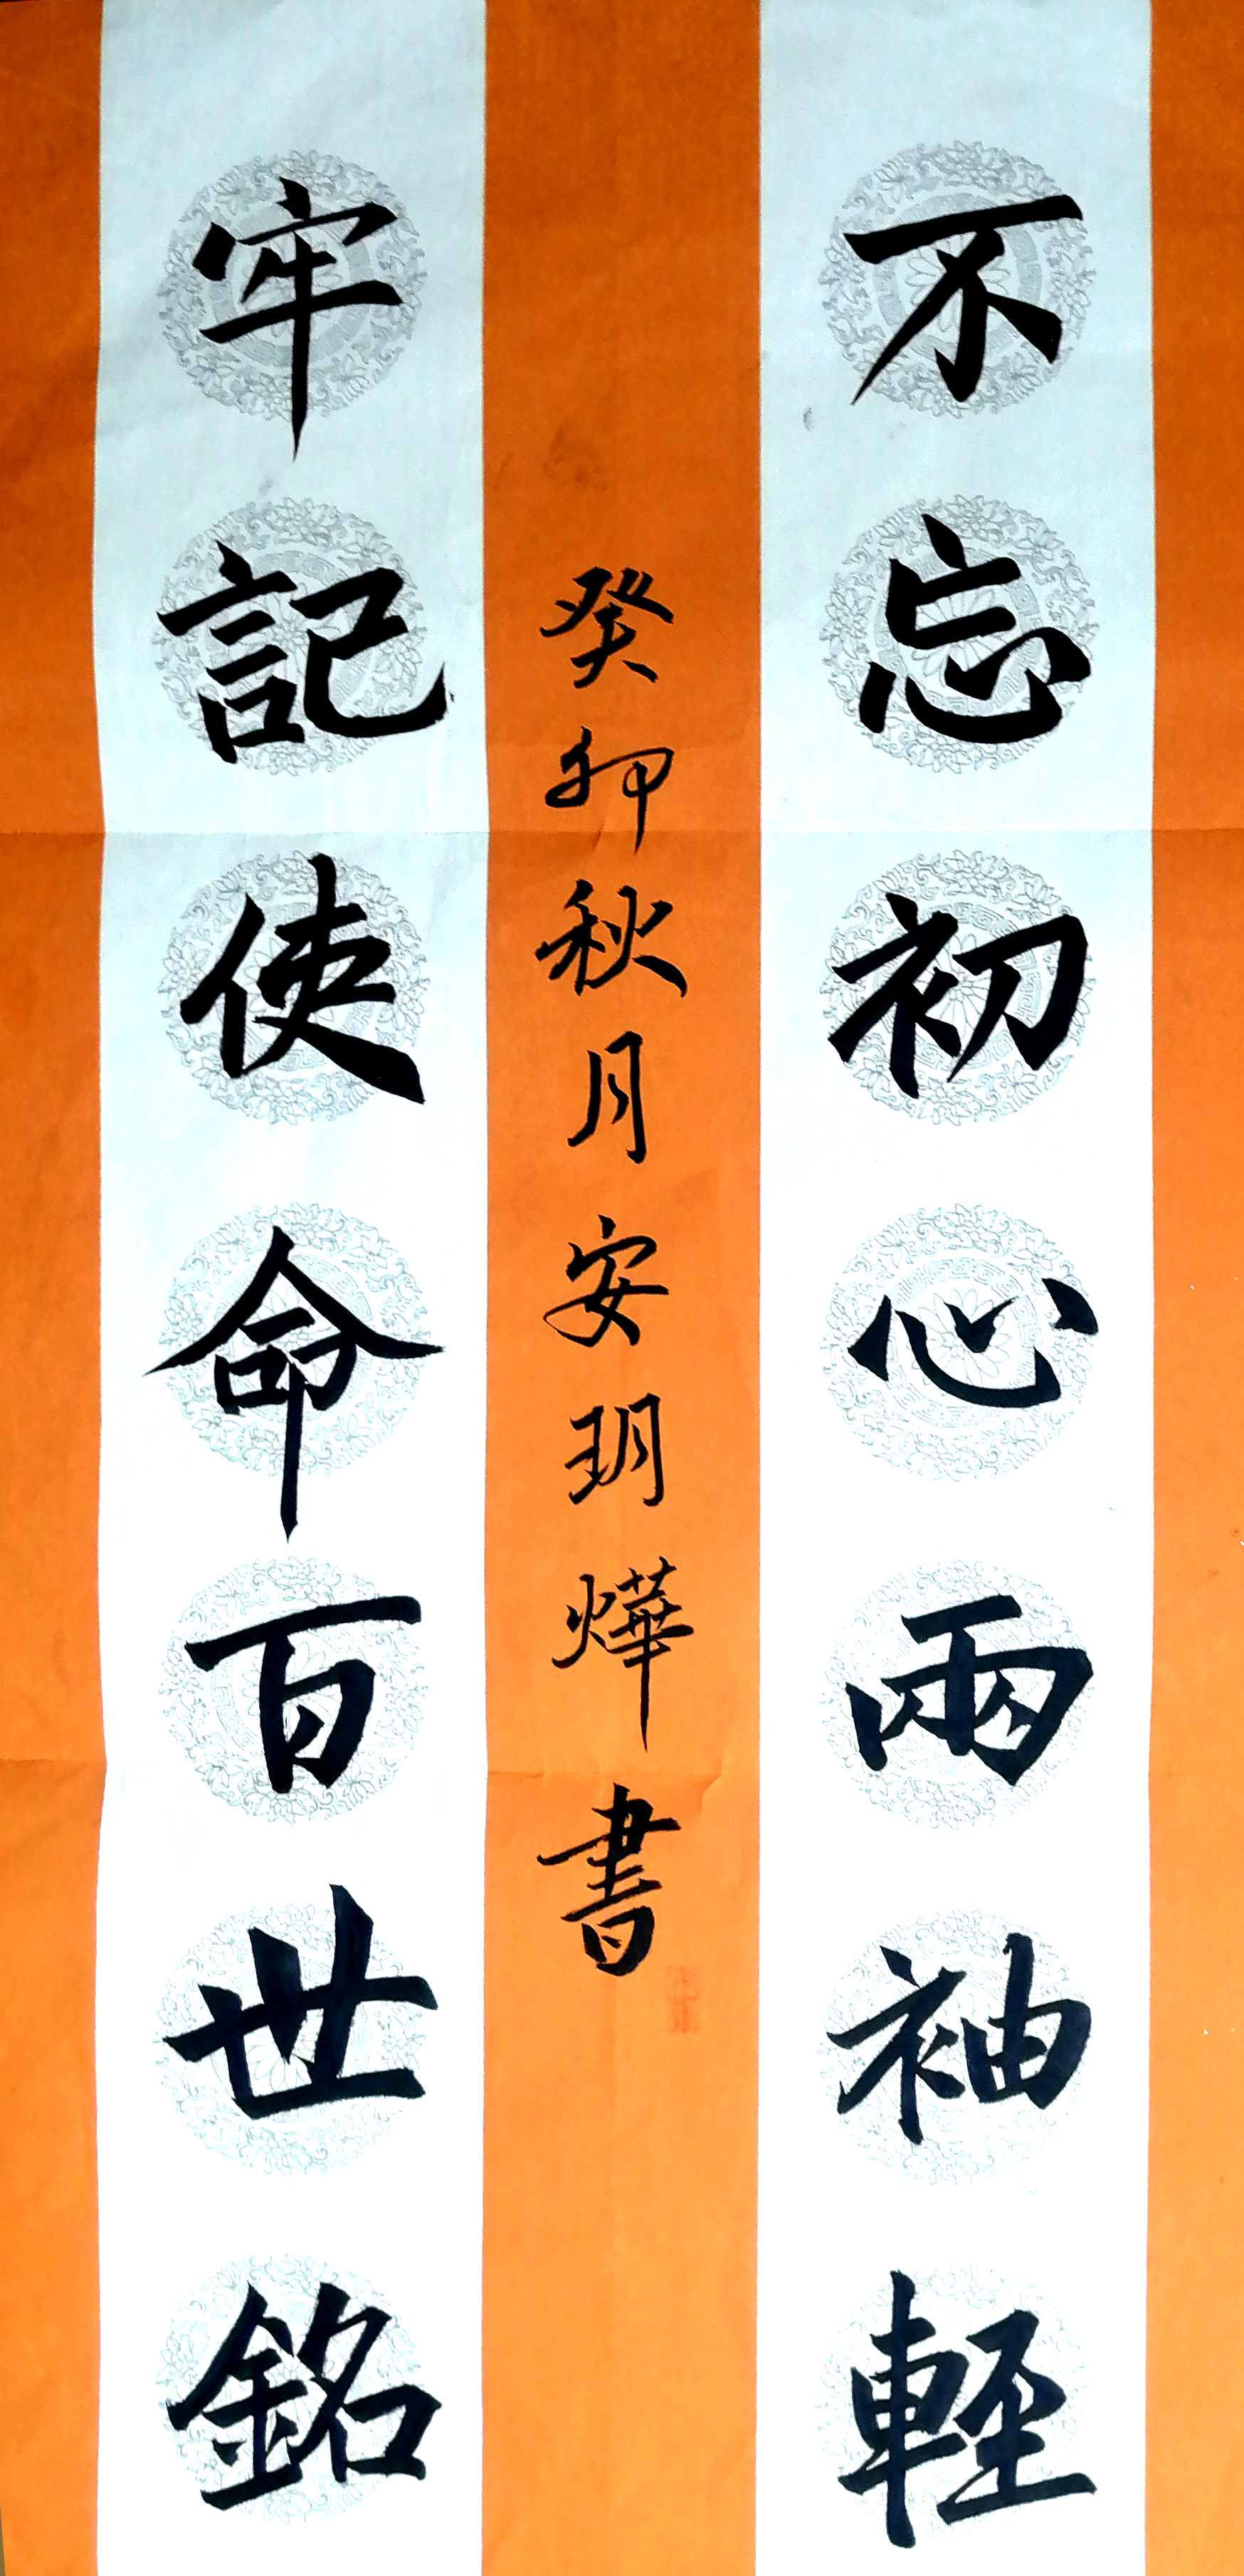 不忘初心兩袖輕
牢記使命百世銘
癸卯秋月安玥燁書